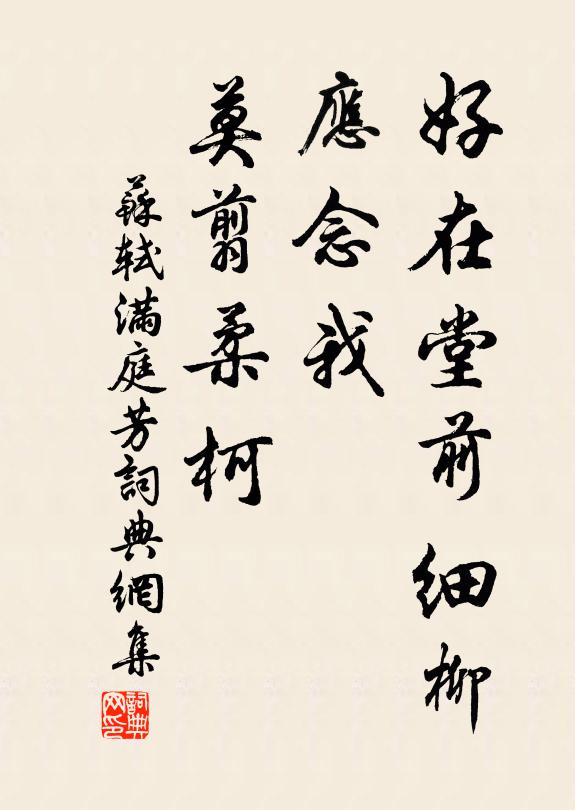 好在堂前細柳
應念我
莫翦柔柯
蘇軾滿庭芳詞典網集
詞典网印